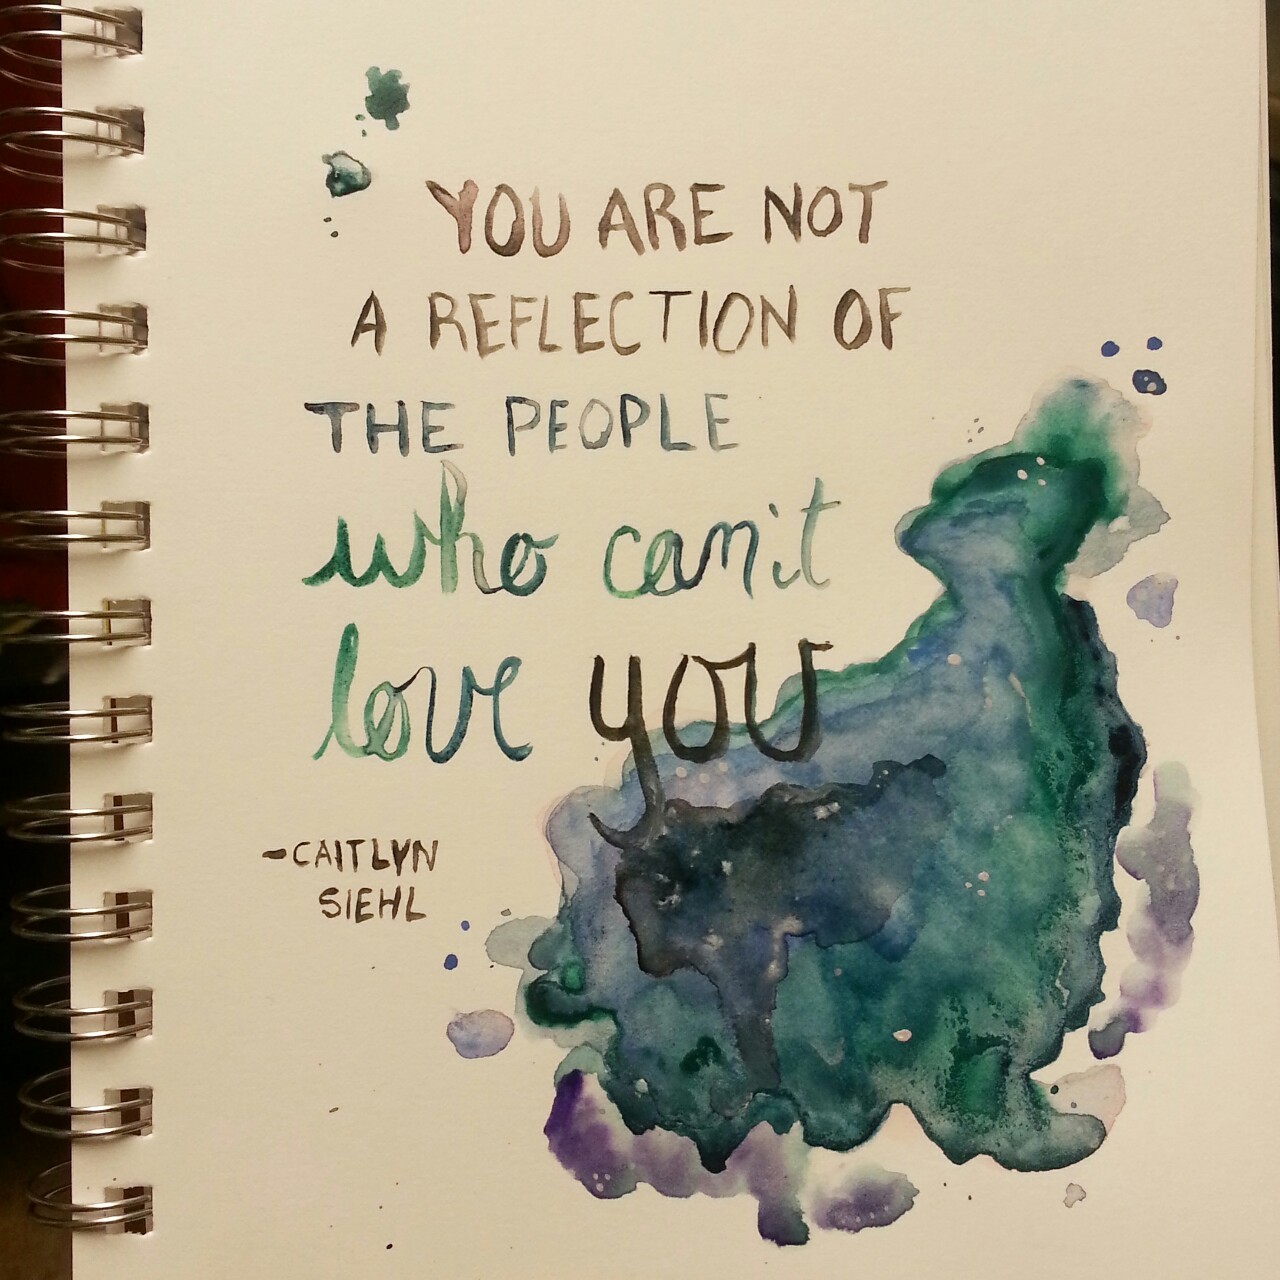 YOU ARE NOT
A REFLECTION OF
THE PEOPLE
who can't
love you
-CAITLYN
SIEHL